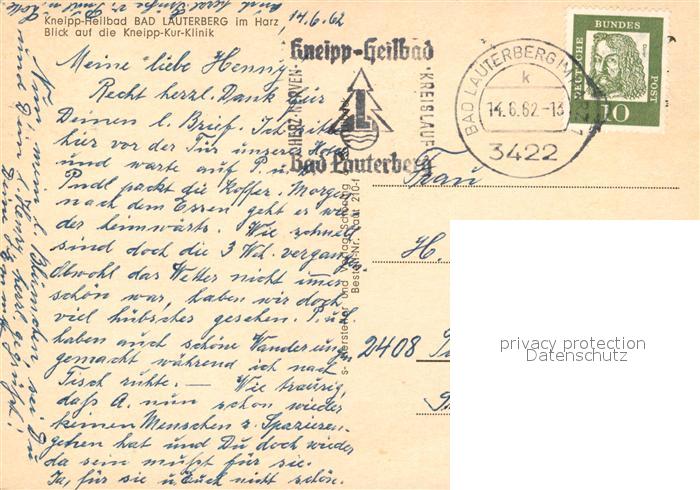 Kneipp-Heilbad BAD LAUTERBERG im Harz
Blick auf die Kneipp-Kur-Klinik
14.6.62
Meine liebe Henny
Recht herzl. Dank für
Deinen l. Brief. Ich
hier vor der Tür unseres
und warte auf P. u.
Pudl packt die Koffer. Morgen
nach dem Essen geht es wie
der heimwärts. Wie schnell
sind doch die 3 Wch. vergangen
Obwohl das Wetter nicht immer
schön war, haben wir doch
viel hübsches gesehen. P. u.
haben auch schöne Wanderungen
gemacht während ich nach
Tisch ruhte. — Wie traurig,
daß A. nun schon wieder
keinen Menschen z. Spazieren-
gehen hat und Du doch wieder
da sein mußt für sie.
Ja, für sie u. Euch nicht schön.
Nun, mein l. Blümchen, sei Du
und Dein l. Henry herzl. gegrüßt!
Kneipp-Heilbad
HERZ-NERVEN-
KREISLAUF
L
Bad Lauterberg
BAD LAUTERBERG IM HARZ 1
k
14.6.62.-13
3422
DEUTSCHE
BUNDES
POST
10
Bestell-Nr.
210-f
Frau
H.
2408
privacy protection
Datenschutz